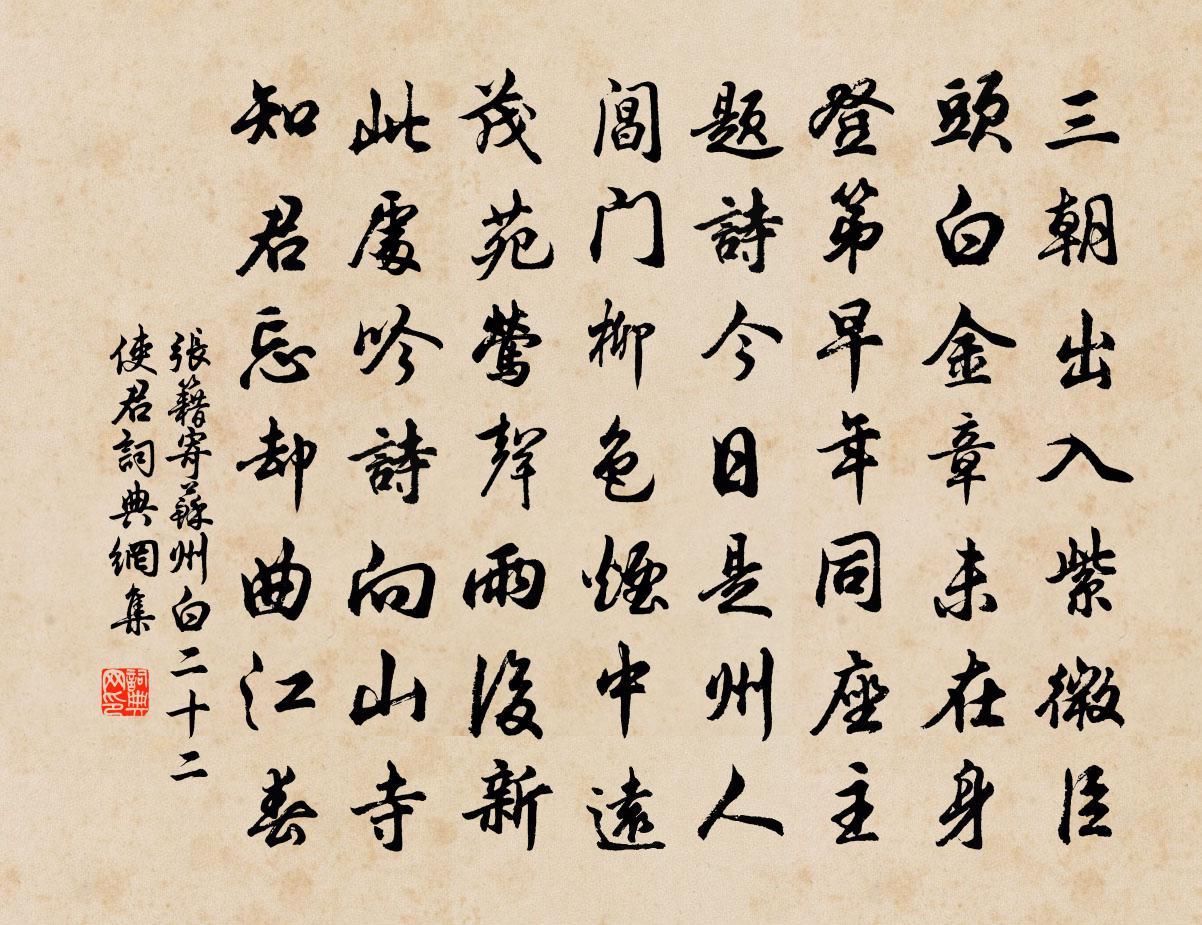 三朝出入紫微臣
頭白金章未在身
登第早年同座主
題詩今日是州人
閶門柳色煙中遠
茂苑鶯聲雨後新
此處吟詩向山寺
知君忘却曲江春
張籍寄蘇州白二十二
使君詞典網集
詞典網印